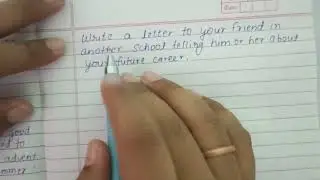 Write a letter to your friend in
another school telling him or her about
your future career.
good
d to
advent